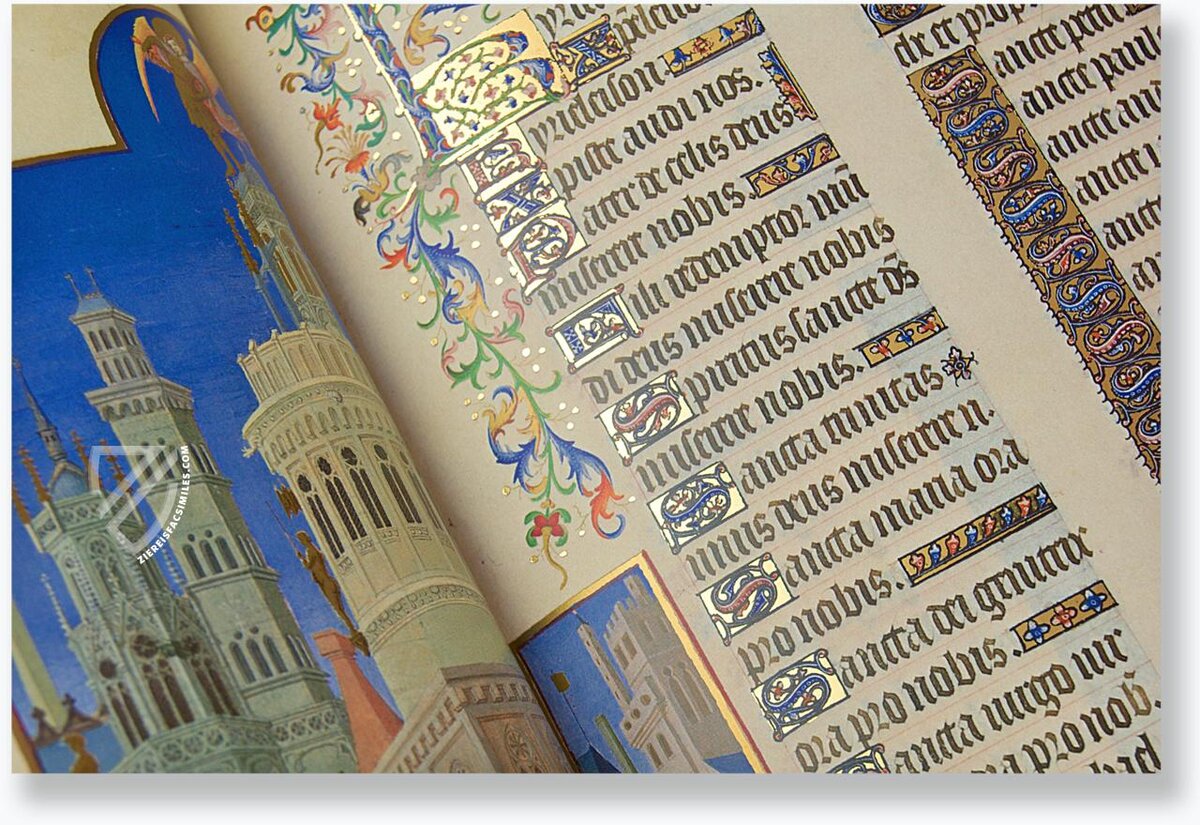 Kyrieleison.
Xpiste audi nos.
Pater de celis deus
miserere nobis.
Fili redemptor mū
di deus miserere nobis
Spiritus sancte ds̄
miserere nobis.
Sancta trinitas
unus deus miserere n.
Sancta maria ora
pro nobis.
Sancta dei genitrix
ora pro nobis.
Sancta uirgo uir
ora pro nob.
de et prop
Sancte petr
Sancte paul
Sancte an
Sancte
Sanct
ZIEREISFACSIMILES.COM